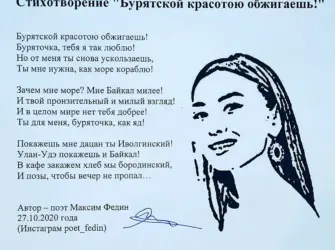 Стихотворение "Бурятской красотою обжигаешь!"
Бурятской красотою обжигаешь!
Буряточка, тебя я так люблю!
Но от меня ты снова ускользаешь,
Ты мне нужна, как море кораблю!
Зачем мне море? Мне Байкал милее!
И твой пронзительный и милый взгляд!
И в целом мире нет тебя добрее!
Ты для меня, буряточка, как яд!
Покажешь мне дацан ты Иволгинский!
Улан-Удэ покажешь и Байкал!
В кафе закажем хлеб мы бородинский,
И позы, чтобы вечер не пропал…
Автор – поэт Максим Федин
27.10.2020 года
(Инстаграм poet_fedin)